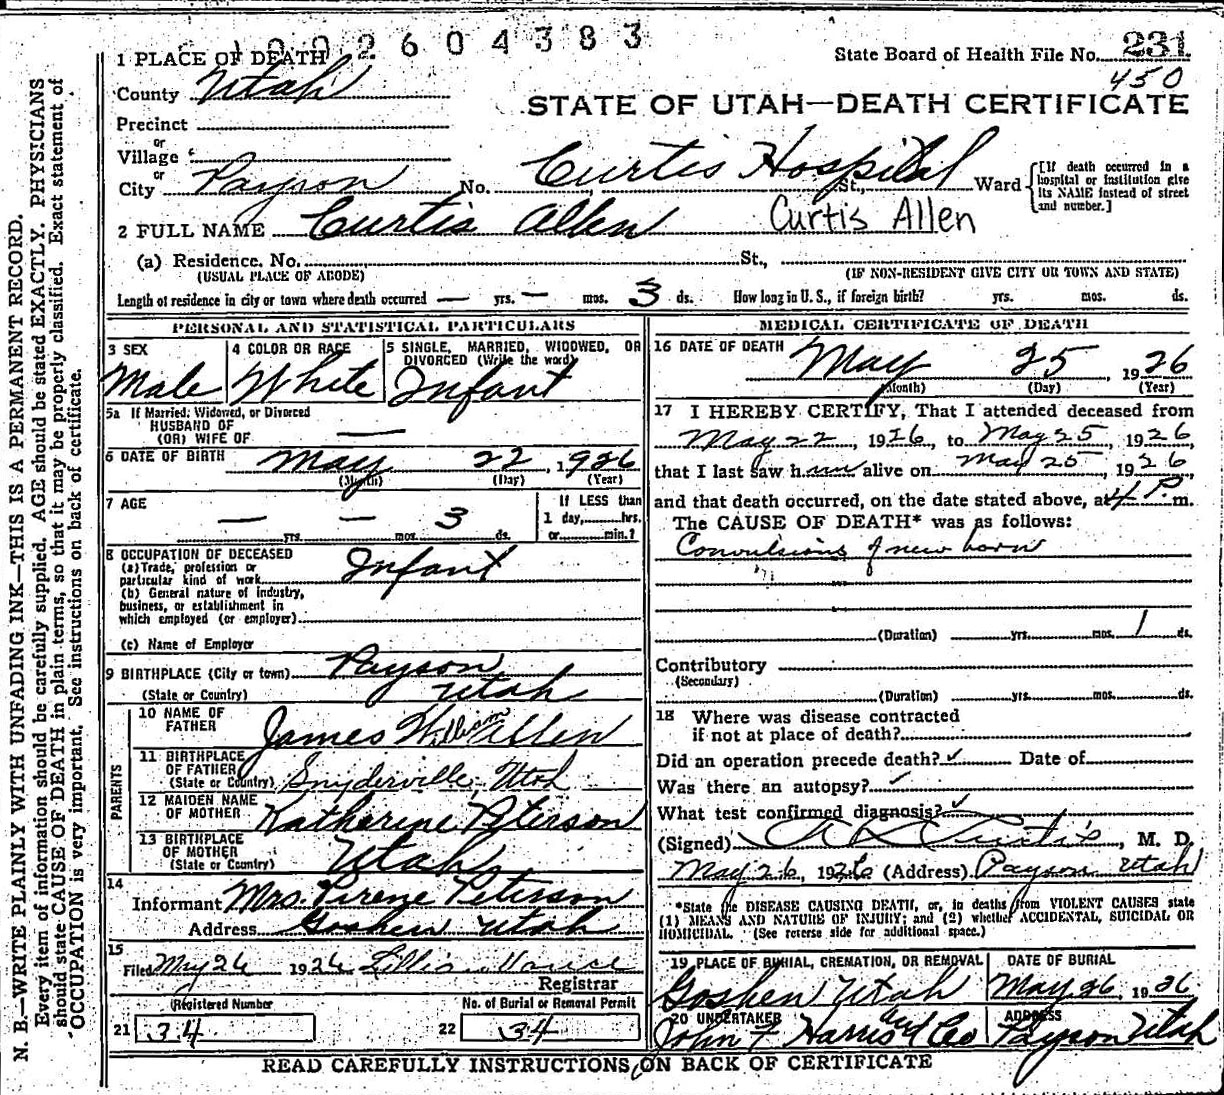 1002604383
State Board of Health File No. 231
450
STATE OF UTAH—DEATH CERTIFICATE
1 PLACE OF DEATH
County Utah
Precinct
or
Village
or
City Payson No. Curtis Hospital St., Ward
[If death occurred in a hospital or institution give its NAME instead of street and number.]
2 FULL NAME Curtis Allen Curtis Allen
(a) Residence. No. St.,
(USUAL PLACE OF ABODE) (IF NON-RESIDENT GIVE CITY OR TOWN AND STATE)
Length of residence in city or town where death occurred — yrs. — mos. 3 ds. How long in U. S., if foreign birth? yrs. mos. ds.
PERSONAL AND STATISTICAL PARTICULARS
3 SEX Male
4 COLOR OR RACE White
5 SINGLE, MARRIED, WIDOWED, OR DIVORCED (Write the word) Infant
5a If Married, Widowed, or Divorced
HUSBAND OF
(OR) WIFE OF —
6 DATE OF BIRTH May 22, 1926
(Month) (Day) (Year)
7 AGE — yrs. — mos. 3 ds.
If LESS than
1 day,......hrs.
or......min.?
8 OCCUPATION OF DECEASED
(a) Trade, profession or
particular kind of work Infant
(b) General nature of industry,
business, or establishment in
which employed (or employer)
(c) Name of Employer
9 BIRTHPLACE (City or town) Payson
(State or Country) Utah
PARENTS
10 NAME OF FATHER James William Allen
11 BIRTHPLACE OF FATHER (State or Country) Snyderville Utah
12 MAIDEN NAME OF MOTHER Katherine Peterson
13 BIRTHPLACE OF MOTHER (State or Country) Utah
14
Informant Mrs. Pirene Peterson
Address Goshen Utah
15
Filed May 26 1926 Registrar
Registered Number
21 34
No. of Burial or Removal Permit
22 34
MEDICAL CERTIFICATE OF DEATH
16 DATE OF DEATH May 25, 1926
(Month) (Day) (Year)
17 I HEREBY CERTIFY, That I attended deceased from
May 22, 1926, to May 25, 1926
that I last saw him alive on May 25, 1926,
and that death occurred, on the date stated above, at 4 P. m.
The CAUSE OF DEATH* was as follows:
Convulsions of new born
(Duration) yrs. mos. 1 ds.
Contributory
(Secondary)
(Duration) yrs. mos. ds.
18 Where was disease contracted
if not at place of death?
Did an operation precede death? ✓ Date of
Was there an autopsy? ✓
What test confirmed diagnosis? ✓
(Signed) Curtis, M. D.
May 26, 1926 (Address) Payson Utah
*State the DISEASE CAUSING DEATH, or, in deaths from VIOLENT CAUSES state
(1) MEANS AND NATURE OF INJURY; and (2) whether ACCIDENTAL, SUICIDAL OR
HOMICIDAL. (See reverse side for additional space.)
19 PLACE OF BURIAL, CREMATION, OR REMOVAL
Goshen Utah
DATE OF BURIAL
May 26, 1926
20 UNDERTAKER
John F Harris and Co
ADDRESS
Payson Utah
READ CAREFULLY INSTRUCTIONS ON BACK OF CERTIFICATE
N. B.—WRITE PLAINLY WITH UNFADING INK—THIS IS A PERMANENT RECORD.
Every item of information should be carefully supplied. AGE should be stated EXACTLY. PHYSICIANS
should state CAUSE OF DEATH in plain terms, so that it may be properly classified. Exact statement of
OCCUPATION is very important. See instructions on back of certificate.